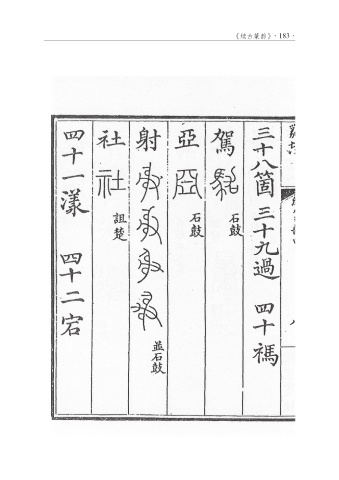 《续古篆韵》·183·
三十八箇 三十九過 四十禡
駕 石鼓
亞 石鼓
射 並石鼓
社 詛楚
四十一漾 四十二宕